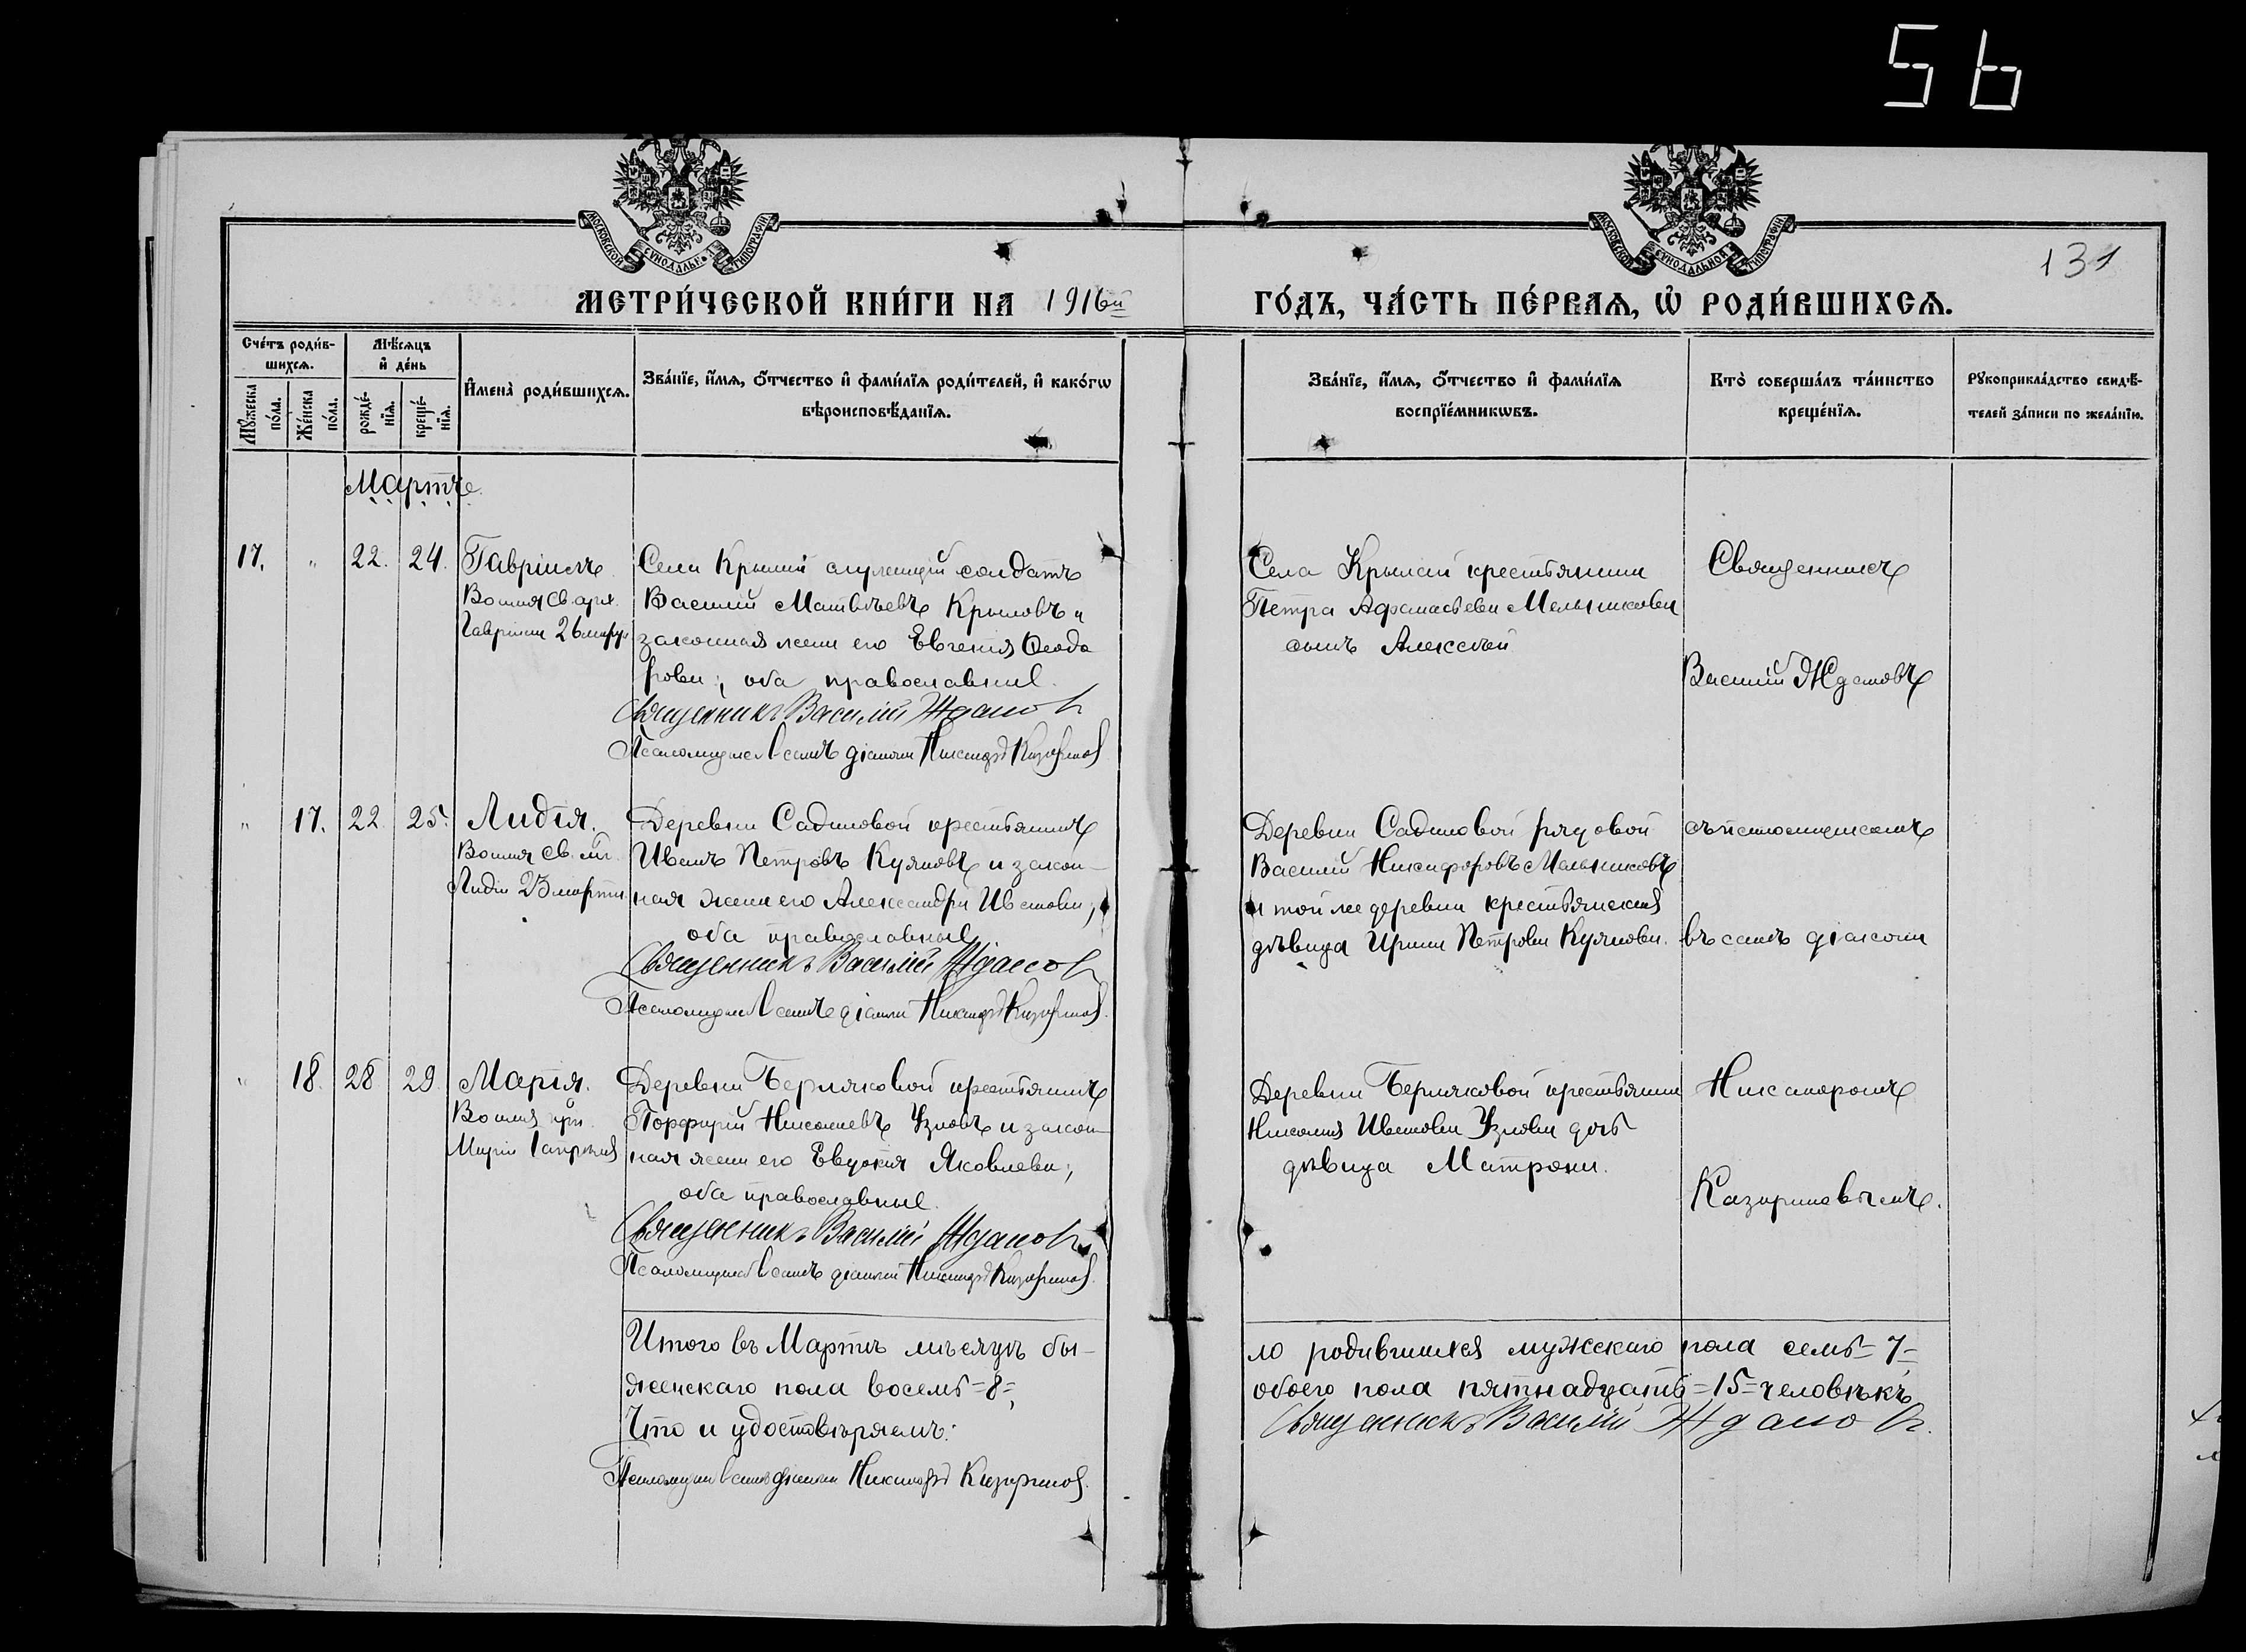 56
131
МОСКОВСКОЙ СѴНОДАЛЬНОЙ ТИПОГРАФІИ
МОСКОВСКОЙ СѴНОДАЛЬНОЙ ТИПОГРАФІИ
МЕТРИ́ЧЕСКОЙ КНИ́ГИ НА 1916ой
ГО́ДЪ, ЧА́СТЬ ПЕ́РВАЯ, Ѡ҆ РОДИ́ВШИХСЯ.
Сче́тъ роди́в-
шихся.
Му́жеска по́ла.
Же́нска по́ла.
Мѣ́сяцъ
и҆ де́нь
рожде́-
нїя.
креще́-
нїя.
И҆мена̀ роди́вшихся.
Зва́нїе, и҆́мя, ѻ҆́тчество и҆ фами́лїя роди́телей, и҆ како́гѡ
вѣроисповѣ́данїя.
Зва́нїе, и҆́мя, ѻ҆́тчество и҆ фами́лїя
воспрїе́мникѡвъ.
Кто̀ соверша́лъ та́инство
креще́нїя.
Рꙋкоприкла́дство свидѣ́-
телей за́писи по жела́нїю.
Мартъ
17. " 22. 24.
Гавріилъ
Во имя Св. арх.
Гавріила 26 марта
Села Крылай служащій солдатъ
Василій Матвѣевъ Крыловъ и
законная жена его Евгенія Ѳеодо
рова; оба православные.
Священникъ Василій Ждановъ
Псаломщикъ въ санѣ діакона Никаноръ Казариновъ
Села Крылай крестьянина
Петра Афанасьева Мельникова
сынъ Алексѣй
Священникъ
Василій Ждановъ
" 17. 22. 25.
Лидія.
Во имя св. мц.
Лидіи 23 марта
Деревни Садиловой крестьянинъ
Иванъ Петровъ Куяновъ и закон-
ная жена его Александра Иванова;
оба православные
Священникъ Василій Ждановъ
Псаломщикъ въ санѣ діакона Никаноръ Казариновъ
Деревни Садиловой рядовой
Василій Никифоровъ Мельниковъ
и той же деревни крестьянская
дѣвица Ирина Петрова Куянова.
съ псаломщикомъ
въ санѣ діакона
" 18. 28. 29.
Марія.
Во имя прп.
Маріи 1 апрѣля
Деревни Берляковой крестьянинъ
Порфирій Николаевъ Узловъ и закон-
ная жена его Евдокія Яковлева;
оба православные.
Священникъ Василій Ждановъ
Псаломщикъ въ санѣ діакона Никаноръ Казариновъ
Деревни Берляковой крестьянина
Николая Иванова Узлова дочь
дѣвица Матрона.
Никаноромъ
Казариновымъ.
Итого въ Мартѣ мѣсяцѣ бы-
ло родившихся мужескаго пола семь =7=
женскаго пола восемь =8=,
обоего пола пятнадцать =15= человѣкъ
Что и удостовѣряемъ:
Священникъ Василій Ждановъ.
Псаломщикъ въ санѣ діакона Никаноръ Казариновъ.